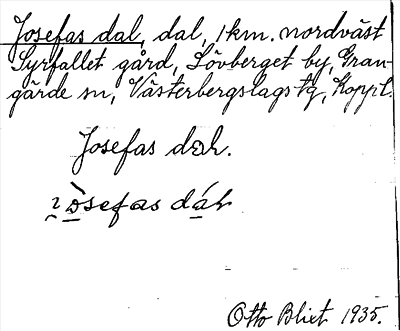 Josefas dal, dal, 1 km. nordväst
Syrfallet gård, Lövberget by, Gran-
gärde sn, Västerbergslags tg, Koppl.
Josefas dah.
Otto Blixt 1935.